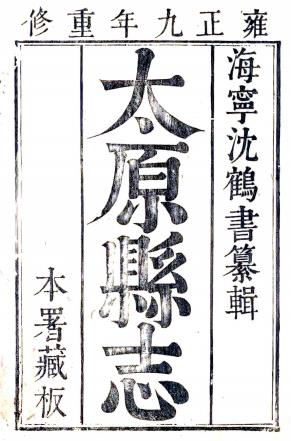 雍正九年重修
海寧沈鶴書纂輯
太原縣志
本署藏板